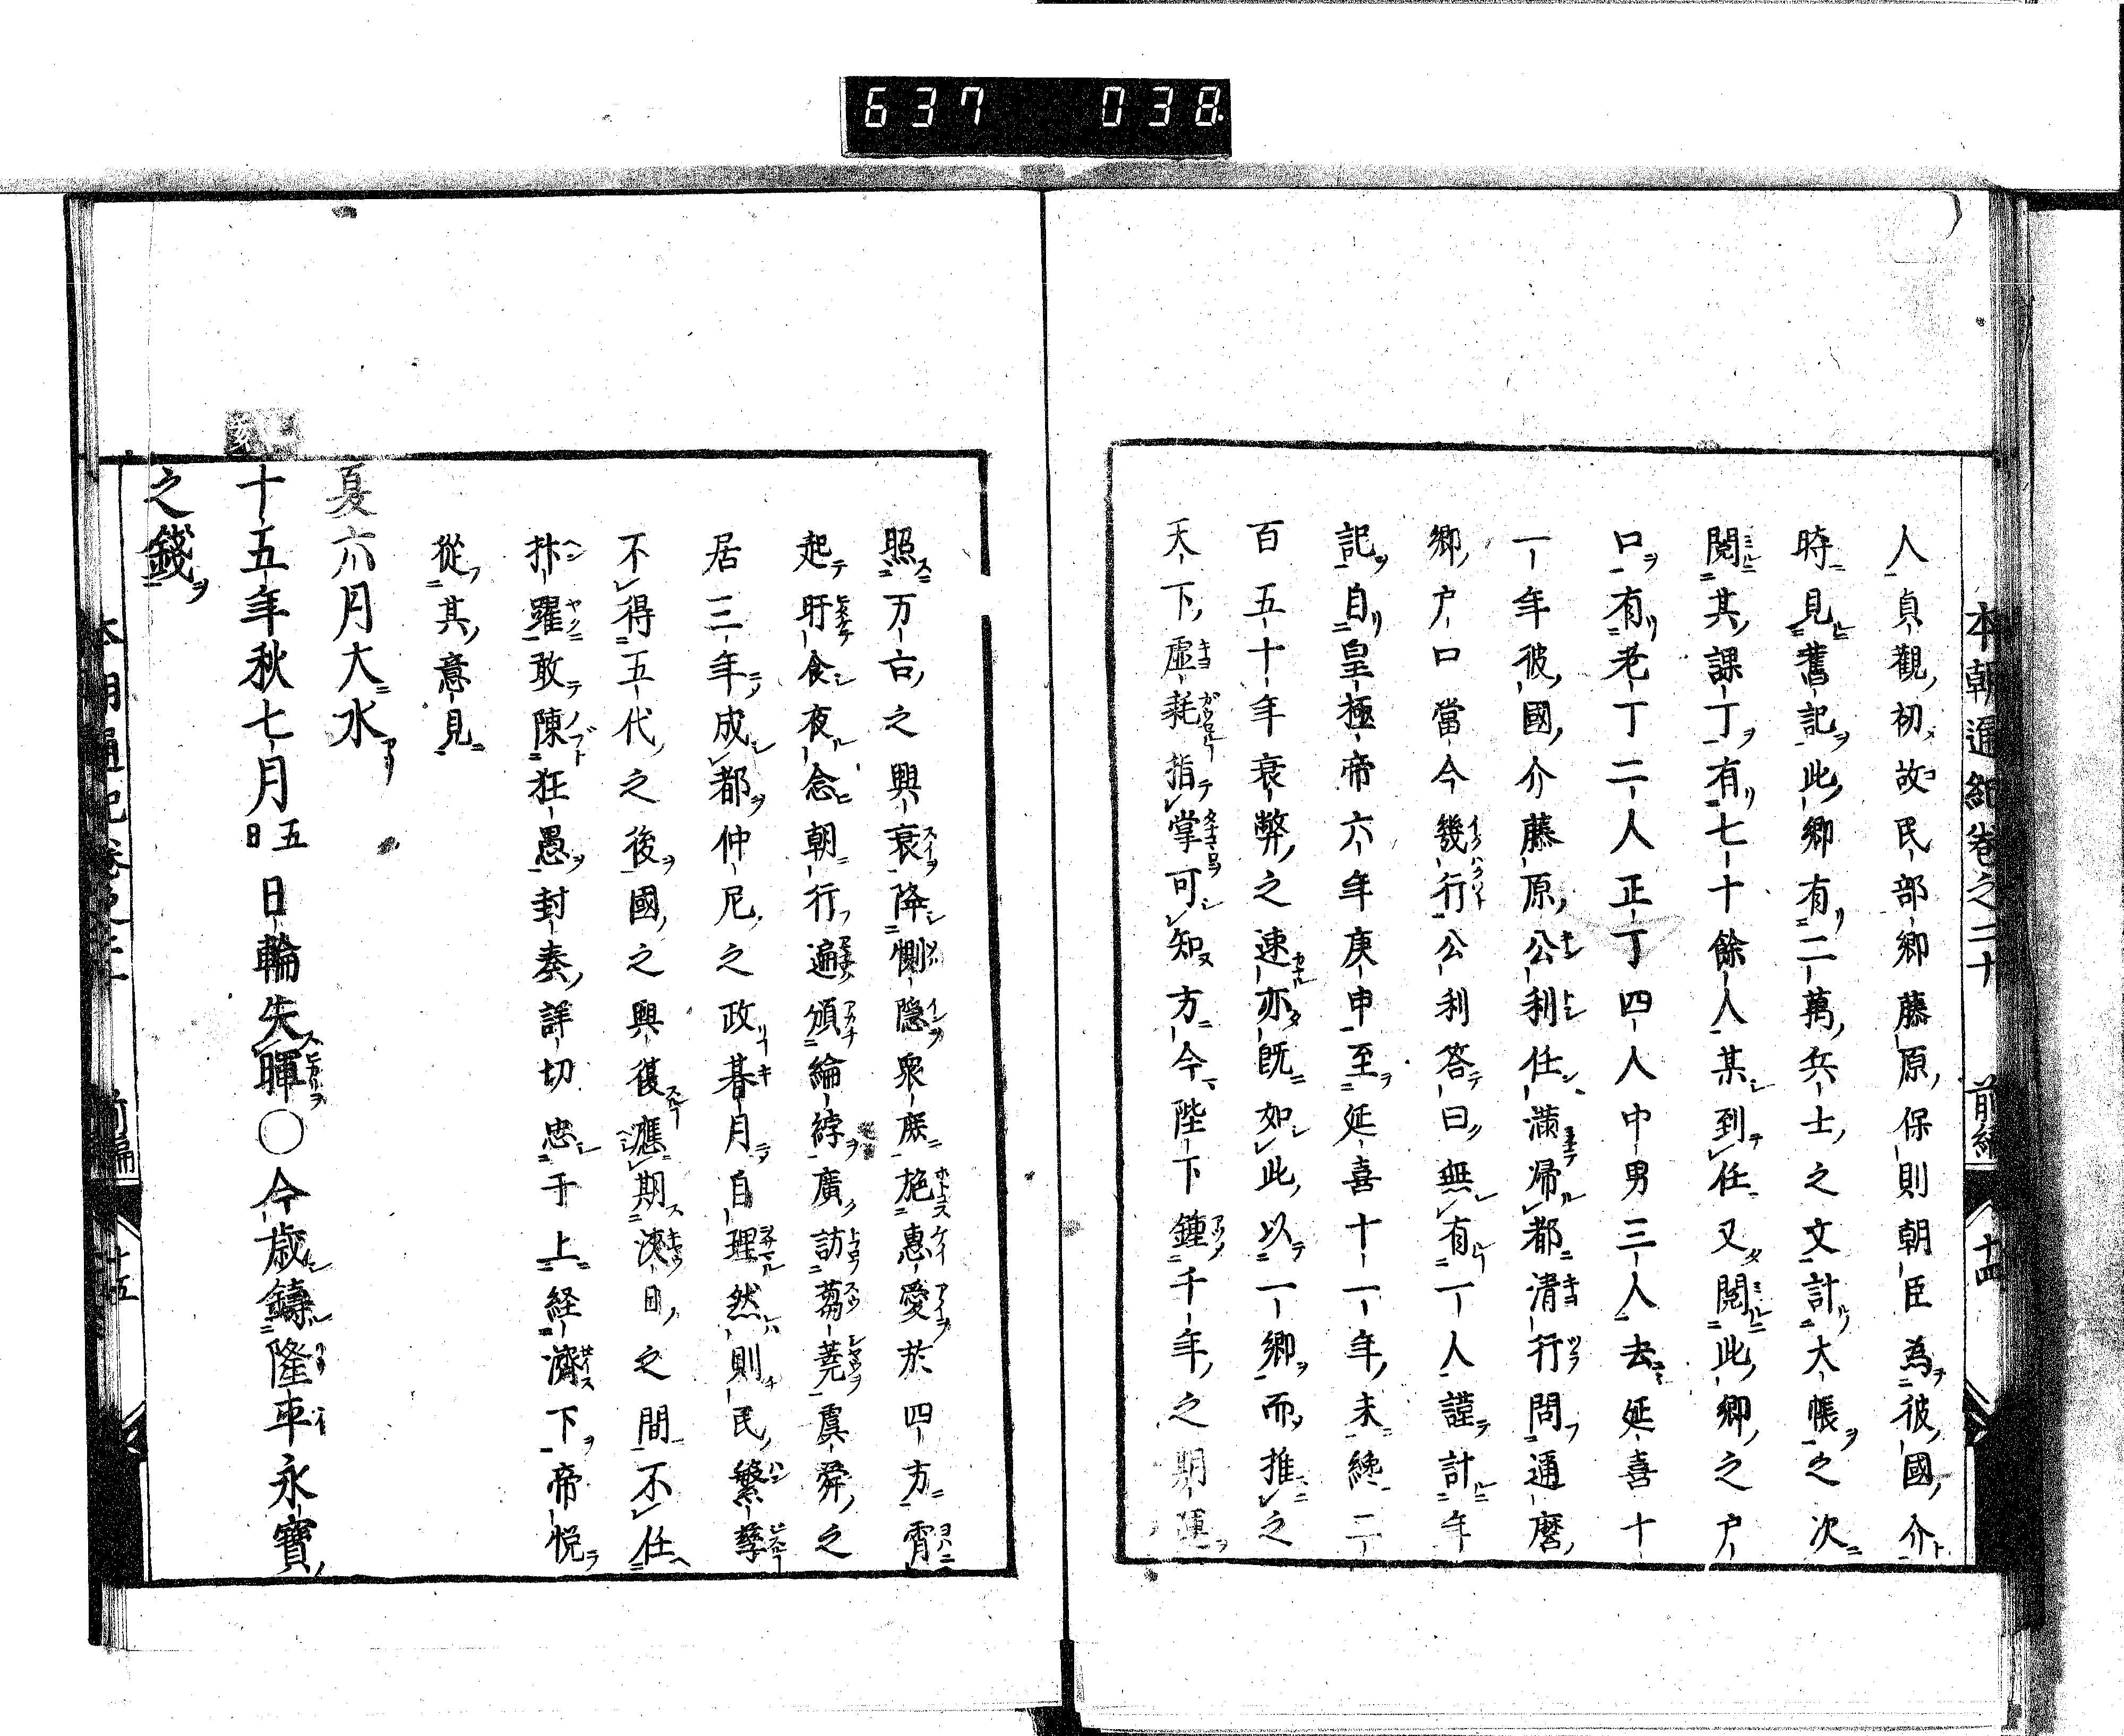 637 038
本朝通紀卷之二十 前編 十四
人貞觀初故民部卿藤原保則朝臣為彼國介
時見舊記此卿有二萬兵士之文計大帳之次
閲其課丁有七十餘人某到任又閲此卿之戸
口有老丁二人正丁四人中男三人去延喜十
一年彼國介藤原公利任滿帰都清行問邇麿
卿戸口當今幾行公利答曰無有一人謹計年
記自皇極帝六年庚申至延喜十一年未纔二
百五十年衰弊之速亦既如此以一卿而推之
天下虚耗指掌可知方今陛下鍾千年之期運
照万古之興衰降惻隠衆庶施惠愛於四方霄
起旰食夜念朝行遍頒綸綍廣訪蒭蕘虞舜之
居三年成都仲尼之政朞月自理然則民繁孳
不得五代之後國之興復應期浹日之間不任
抃躍敢陳狂愚封奏詳切忠于上経濟下帝悦
從其意見
夏六月大水
十五年秋七月五日日輪失暉〇今歳鑄隆平永寶
之錢
本朝通紀卷之二十 前編 十五